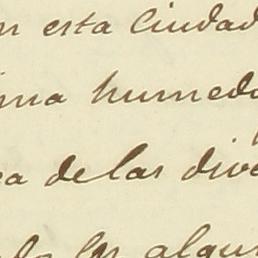 n esta ciudad
ma humeda
a de las dive
do los algun